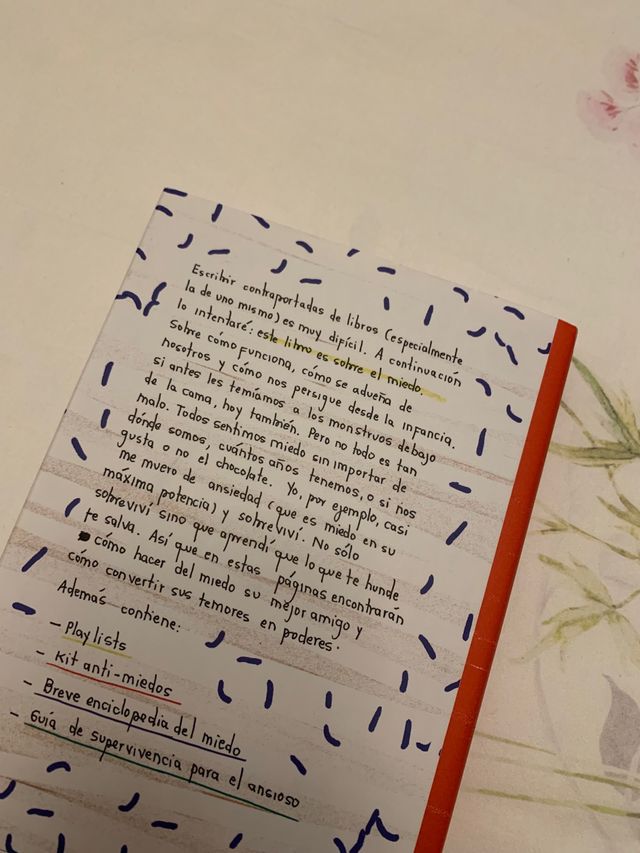 Escribir contraportadas de libros (especialmente
la de uno mismo) es muy difícil. A continuación
lo intentaré: este libro es sobre el miedo.
Sobre cómo funciona, cómo se adueña de
nosotros y cómo nos persigue desde la infancia.
si antes les temíamos a los monstruos debajo
de la cama, hoy también. Pero no todo es tan
malo. Todos sentimos miedo sin importar de
dónde somos, cuántos años tenemos, o si nos
gusta o no el chocolate. Yo, por ejemplo, casi
me muero de ansiedad (que es miedo en su
máxima potencia) y sobreviví. No sólo
sobreviví sino que aprendí que lo que te hunde
te salva. Así que en estas páginas encontrarán
cómo hacer del miedo su mejor amigo y
cómo convertir sus temores en poderes.
Además contiene:
- Playlists
- Kit anti-miedos
- Breve enciclopedia del miedo
- Guía de supervivencia para el ansioso